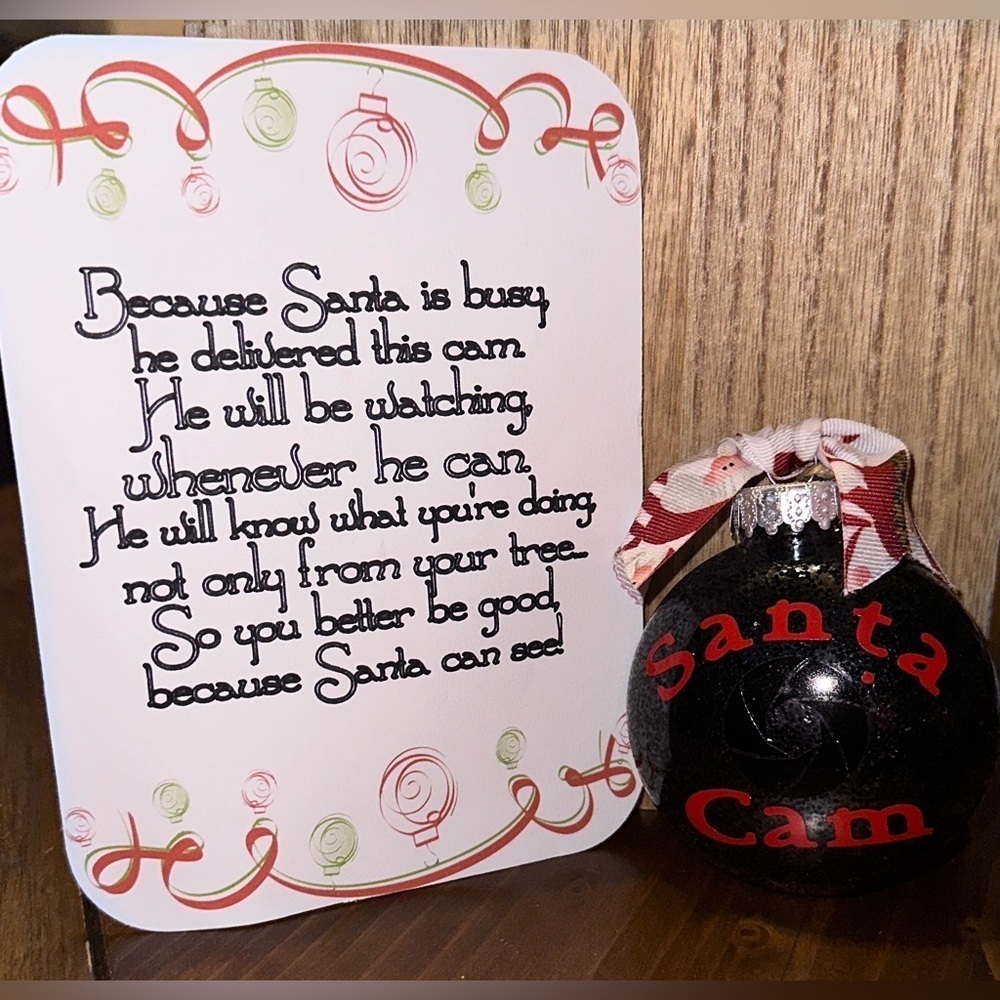 Because Santa is busy,
he delivered this cam.
He will be watching,
whenever he can.
He will know what you're doing,
not only from your tree...
So you better be good,
because Santa can see!
Santa
Cam